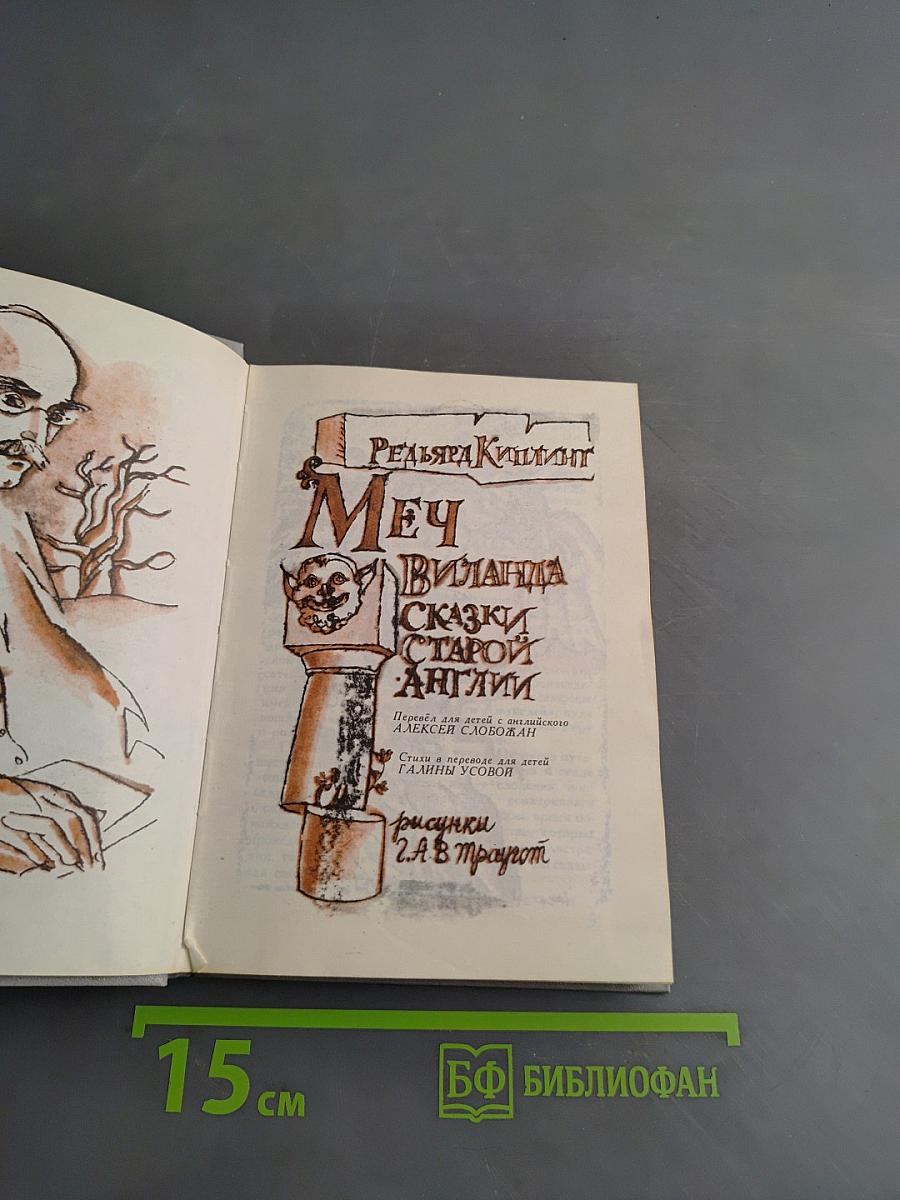 Редьярд Киплинг
Меч
Виланда
Сказки
Старой
Англии
Перевёл для детей с английского
АЛЕКСЕЙ СЛОБОЖАН
Стихи в переводе для детей
ГАЛИНЫ УСОВОЙ
рисунки
Г.А.В Траугот
15 см
БФ БИБЛИОФАН